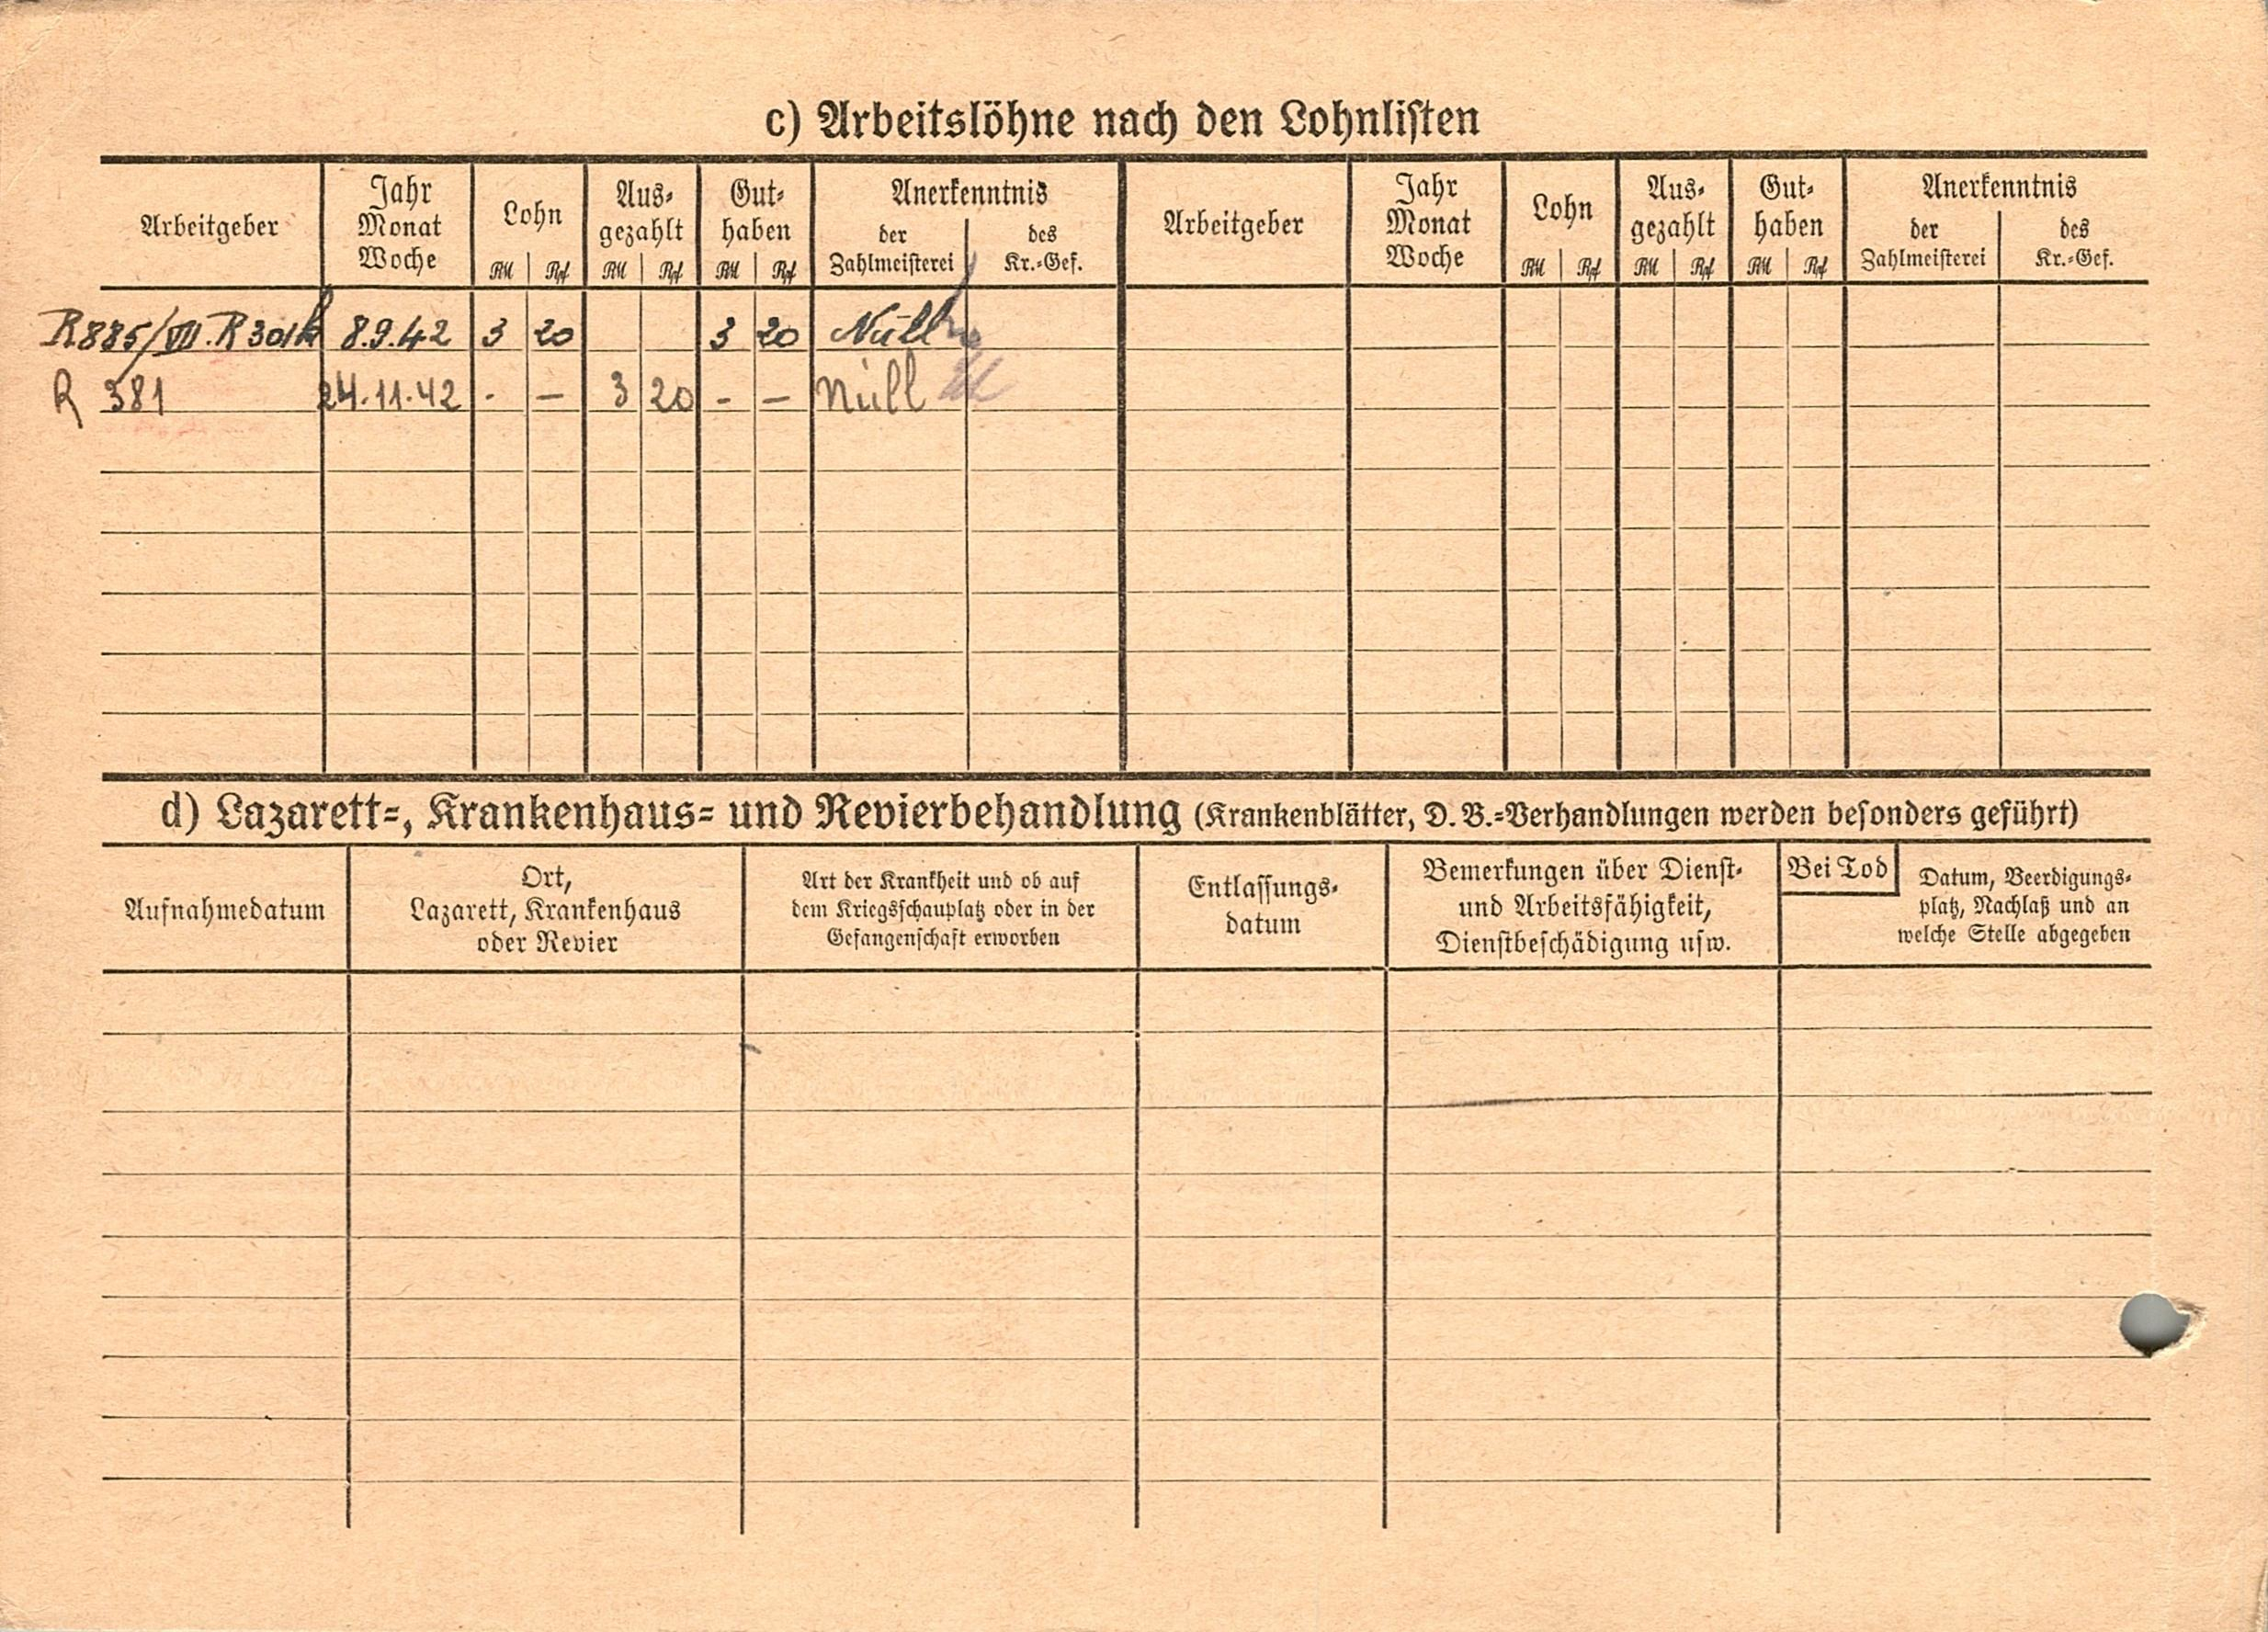 c) Arbeitslöhne nach den Lohnlisten
Arbeitgeber
Jahr
Monat
Woche
Lohn
RM Rpf
Aus-
gezahlt
RM Rpf
Gut-
haben
RM Rpf
Anerkenntnis
der
Zahlmeisterei
des
Kr.-Gef.
Arbeitgeber
Jahr
Monat
Woche
Lohn
RM Rpf
Aus-
gezahlt
RM Rpf
Gut-
haben
RM Rpf
Anerkenntnis
der
Zahlmeisterei
des
Kr.-Gef.
R885/VII. 8.9.42 3 20 3 20 Nüll
R 381 24.11.42 - - 3 20 - - Nüll
d) Lazarett-, Krankenhaus- und Revierbehandlung (Krankenblätter, D. B.-Verhandlungen werden besonders geführt)
Aufnahmedatum
Ort,
Lazarett, Krankenhaus
oder Revier
Art der Krankheit und ob auf
dem Kriegsschauplatz oder in der
Gefangenschaft erworben
Entlassungs-
datum
Bemerkungen über Dienst-
und Arbeitsfähigkeit,
Dienstbeschädigung usw.
Bei Tod
Datum, Beerdigungs-
platz, Nachlaß und an
welche Stelle abgegeben